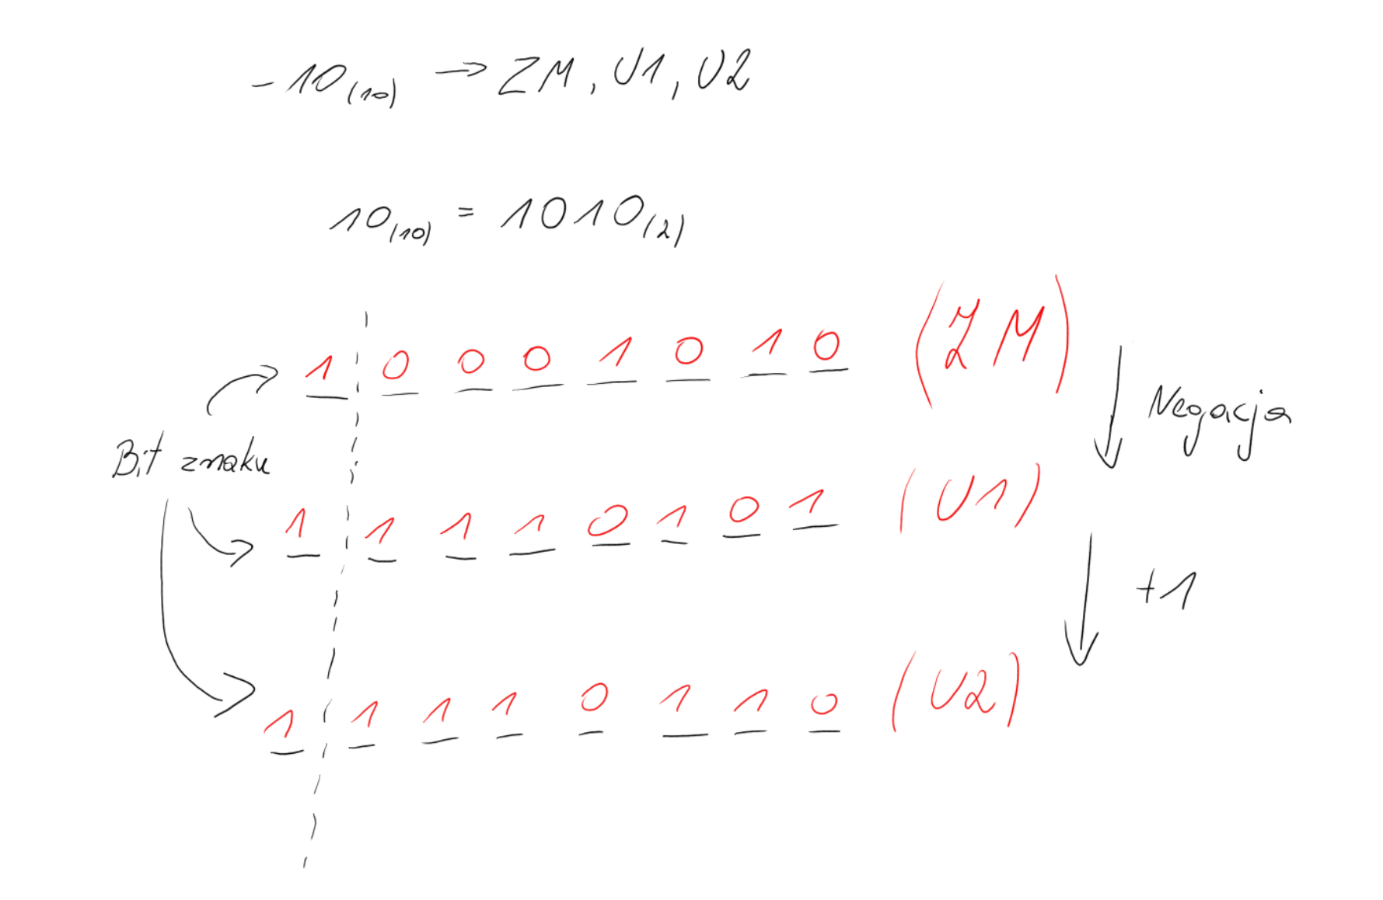 -10(10) → ZM, U1, U2
10(10) = 1010(2)
1 0 0 0 1 0 1 0 (ZM)
Negacja
Bit znaku
1 1 1 1 0 1 0 1 (U1)
+1
1 1 1 1 0 1 1 0 (U2)